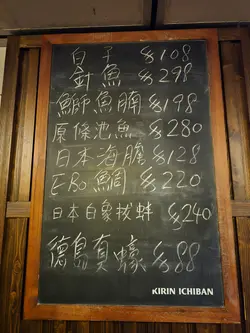 白子 $108
針魚 $298
鰤魚腩 $198
原條池魚 $280
日本海膽 $128
EBO鯛 $220
日本白象拔蚌 $240
德島真蠔 $88
KIRIN ICHIBAN